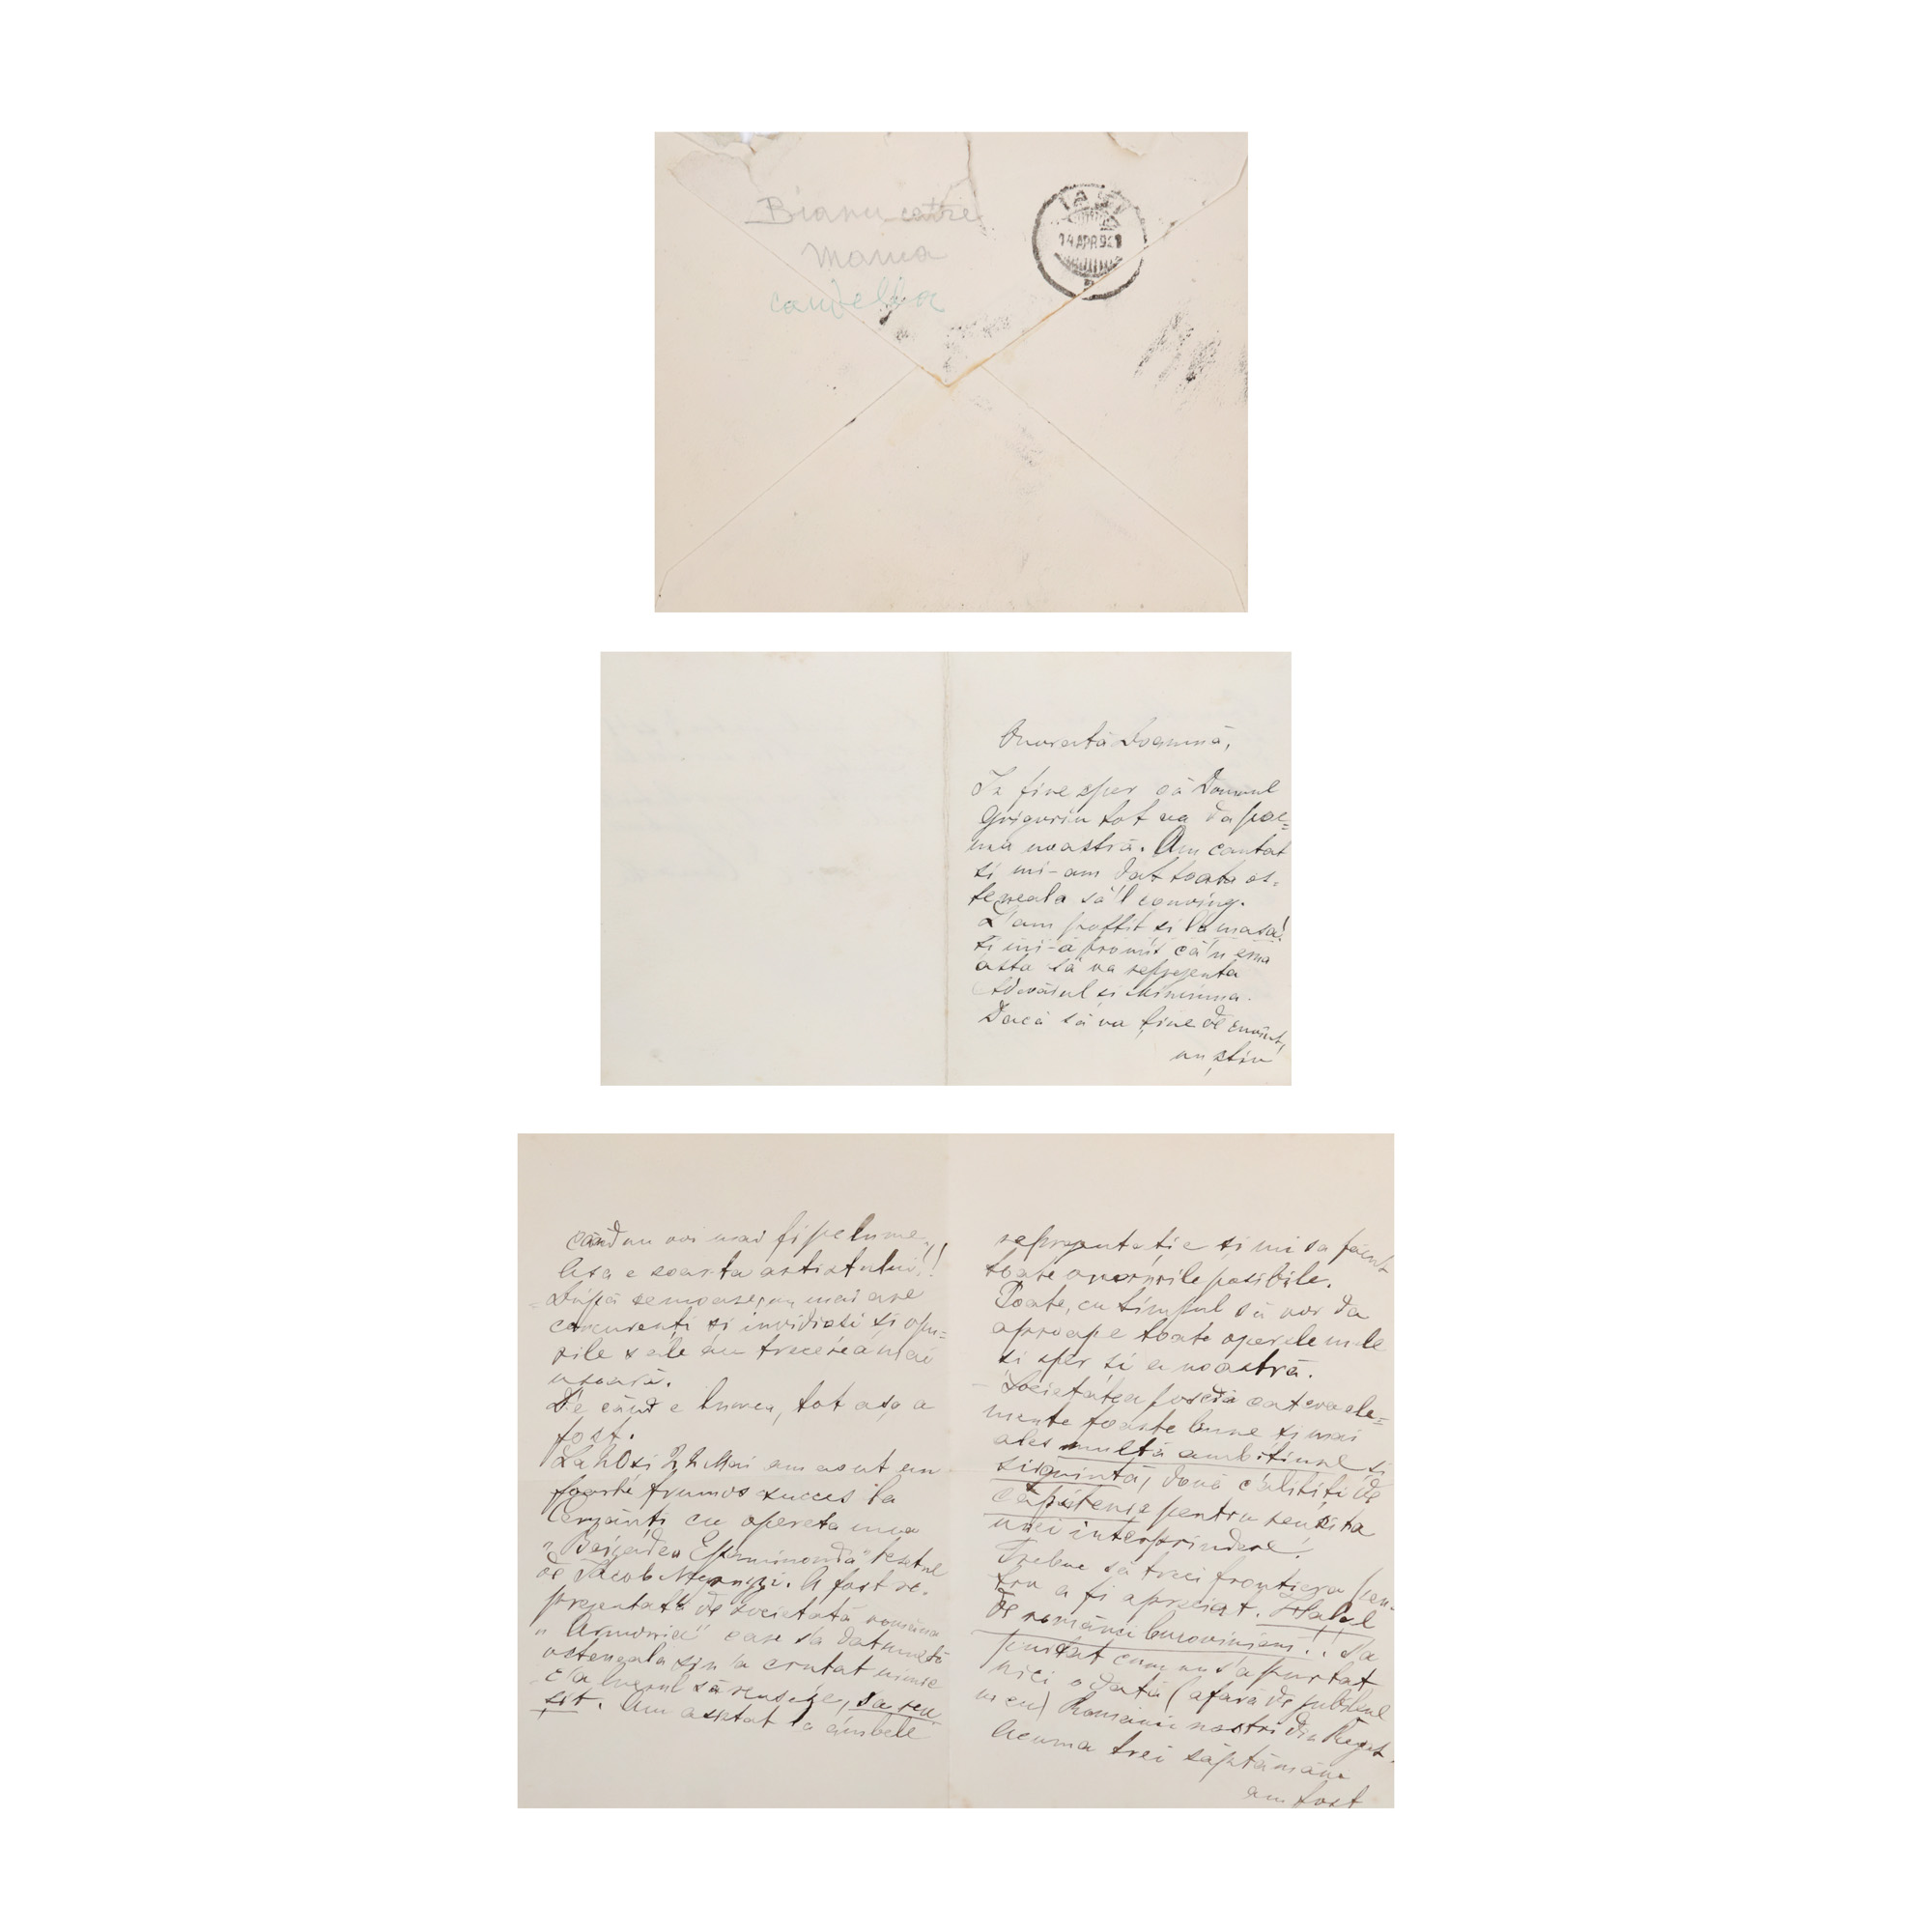 Bianu catre
Maria
caudella
IAȘI
14 APR 921
Onorată Doamnă,
In fine sper că Domnul
Grigoriu tot va da poe=
ma noastră. Am cantat
si mi-am dat toata os-
teneala să'l conving.
L'am poftit si la masa!
si mi-a promis că'n erna
asta să va representa
Adevărul și Minciuna.
Dacă să va ține de cuvînt,
nu știu
când nu voi mai fi pe lume.
Asa e soarta artistului!!
După ce moare, nu mai are
concurenți și invidiosi și ope=
rile sale au trecerea mai
usoară.
De când e lumea, tot așa a
fost.
La 20 si 22 Mai am avut un
foarte frumos succes la
Cernăuti cu opereta mea
"Beizadea Epaminonda" textul
de Iacob Negruzzi. A fost re-
presentată de societată română
"Armonia" care s'a dat multă
osteneala si n'a crutat nimic
ca lucrul să reusește, s'a reu-
șit. Am asistat la ambele
representatie și mi s'a făcut
toate onorurile posibile.
Poate, cu timpul să vor da
aproape toate operele mele
si sper și a noastră.
Societatea posedă cateva ele=
mente foarte bune și mai
ales multă ambitiune și
siguintă, două călități de
căpitenie pentru reușita
unei interprindere!
Trebue să treci frontiera pen-
tru a fi apreciat. Halal
de românii bucovinieni!! S'a
purtat cum nu s'a purtat
nici o dată (afară de publicul
meu) Românii nostri din Regat.
Acuma trei săptămâni
am fost